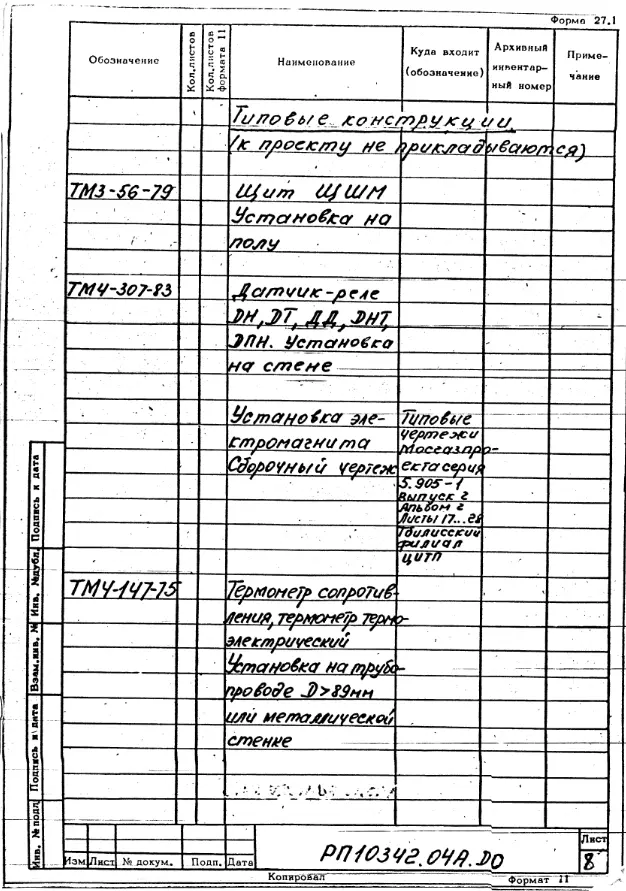 Форма 27.1
Обозначение
Кол.листов
Кол.листов формата 11
Наименование
Куда входит (обозначение)
Архивный инвентарный номер
Примечание
Типовые конструкции
(к проекту не прикладываются)
ТМ3-56-79 Щит ЩШМ
Установка на
полу
ТМ4-307-83 Датчик-реле
ДН, ДТ, ДД, ДНТ,
ДПН. Установка
на стене
Установка эле-
ктромагнита
Сборочный чертеж
Типовые
чертежи
Мосгазпро-
екта серия
5.905-1
Выпуск 2
Альбом 2
Листы 17...28
Тбилисский
филиал
ЦИТП
ТМ4-147-75 Термометр сопротив-
ления, термометр термо-
электрический
Установка на трубо-
проводе D>89мм
или металлической
стенке
Инв. № подл.
Подпись и дата
Взам.инв. №
Инв. №дубл.
Подпись и дата
Изм Лист № докум. Подп. Дата
РП10342.04А.Д0
Лист
8
Копировал
Формат 11